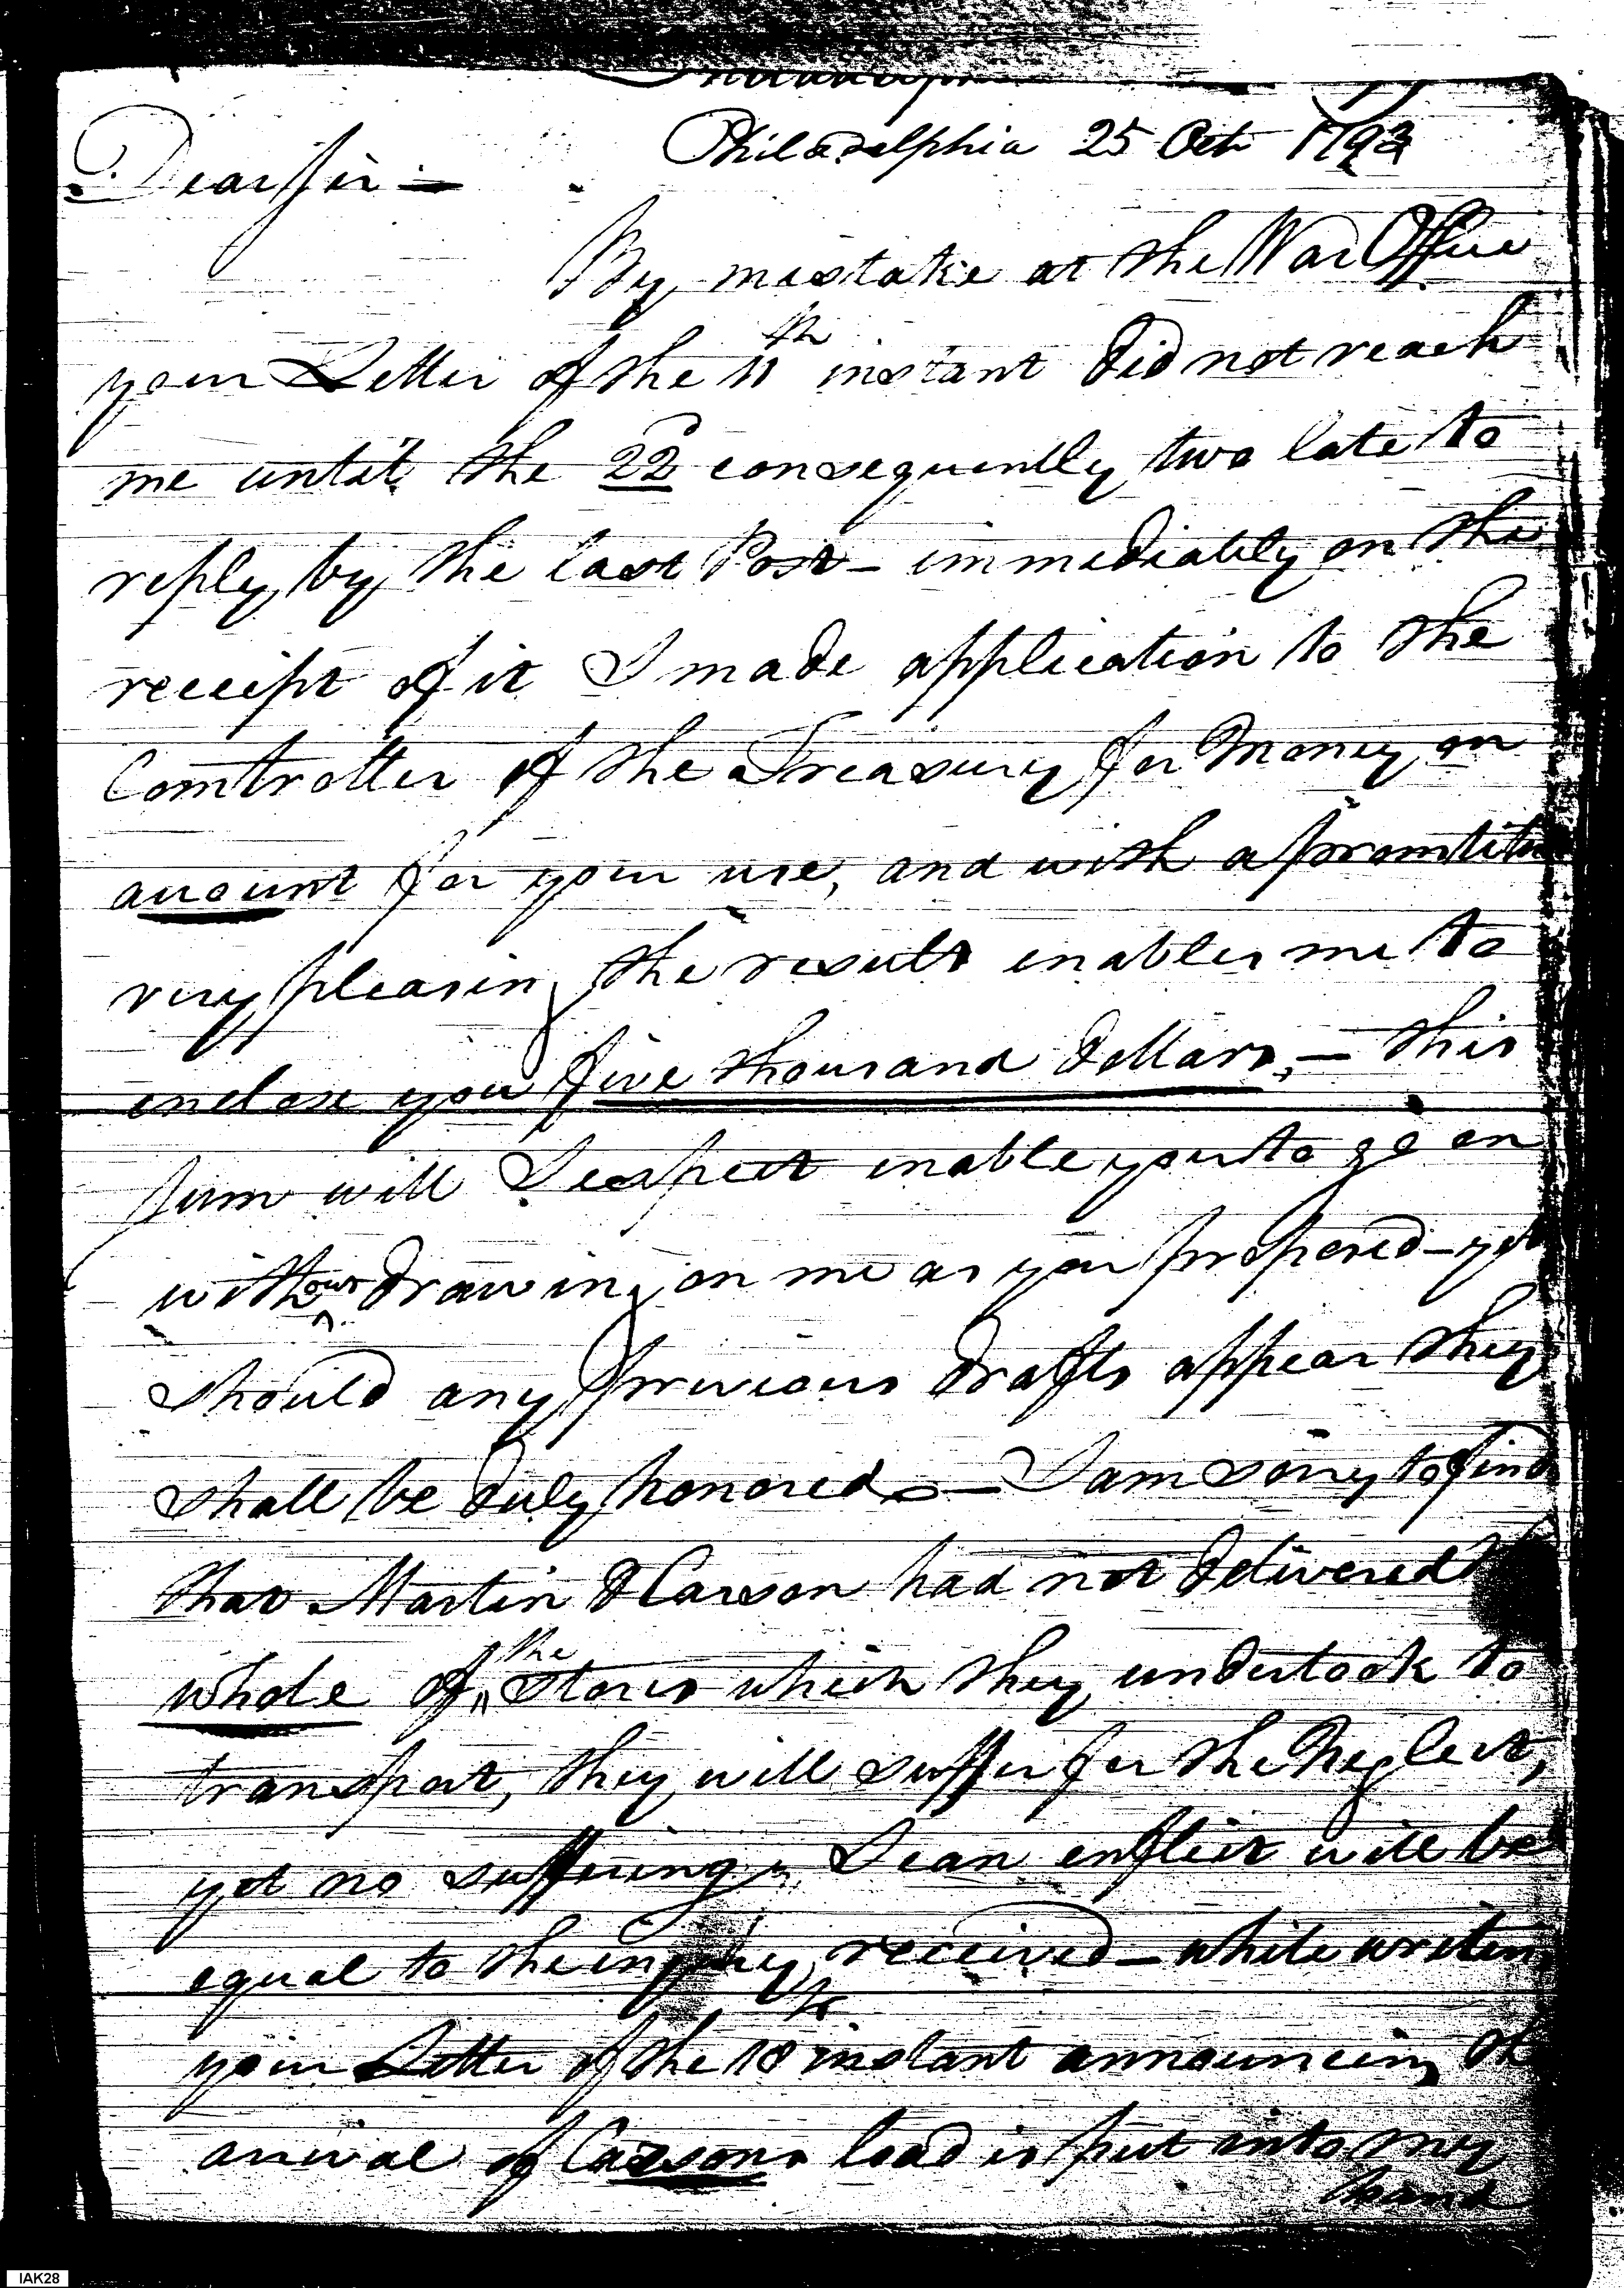 Philadelphia 25 Oct 1793
Dear Sir —
By mistake at the War Office
your Letter of the 11th instant did not reach
me until the 22d consequently two late to
reply by the last Post — immediately on the
receipt of it I made application to the
Comtroller of the Treasury for Money on
account for your use, and with a promtitu
very pleasing the result enables me to
enclose you five thousand dollars, — this
sum will I expect enable you to go on
without drawing on me as you proposed — yet
should any previous drafts appear they
shall be duly honored — I am sorry to find
that Martin & Carson had not delivered
whole of the Stores which they undertook to
transport, they will suffer for the Neglect,
yet no suffering I can inflict will be
equal to the injury received — while writing
your Letter of the 18th instant announcing the
arrival of Carsons load is put into my
hand
IAK28